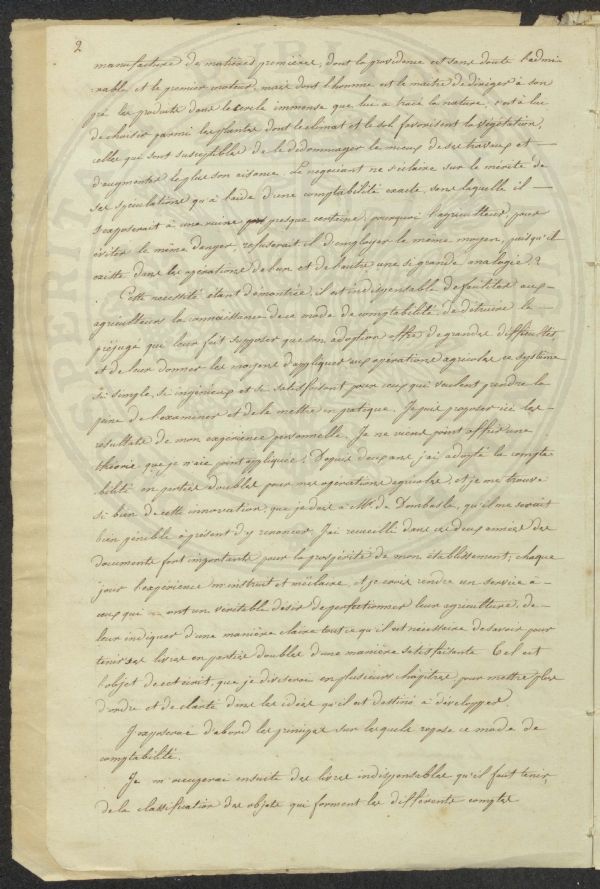 2
manufacture de matières premières, dont la providence est sans doute l'admi-
rable et le premier moteur, mais dont l'homme est le maître de diriger à son
gré les produits dans le cercle immense que lui a tracé la nature, c'est à lui
de choisir parmi les plantes dont le climat et le sol favorisent la végétation,
celles qui sont susceptibles de le dédommager le mieux de ses travaux et
d'augmenter le plus son aisance. Le négociant ne s'éclaire sur le mérite de
ses spéculations qu'à l'aide d'une comptabilité exacte, sans laquelle il
s'exposerait à une ruine presque certaine, pourquoi l'agriculteur, pour
éviter le même danger, refuserait il d'employer le même moyen, puisqu'il
existe dans les opérations de l'un et de l'autre une si grande analogie ?
Cette nécessité étant démontrée, il est indispensable de faciliter aux
agriculteurs la connaissance de ce mode de comptabilité, de détruire le
préjugé qui leur fait supposer que son adoption offre de grandes difficultés
et de leur donner les moyens d'appliquer aux opérations agricoles ce système
si simple, si ingénieux et si satisfaisant pour ceux qui veulent prendre la
peine de l'examiner et de le mettre en pratique. Je puis proposer ici les
résultats de mon expérience personnelle. Je ne viens point offrir une
théorie que je n'aie point appliquée. Depuis deux ans j'ai adopté la compta-
bilité en parties doubles pour mes opérations agricoles, et je me trouve
si bien de cette innovation, que je dois à Mr. de Dombasle, qu'il me serait
bien pénible à présent d'y renoncer. J'ai recueilli dans ces deux années des
documents fort importants pour la prospérité de mon établissement; chaque
jour l'expérience m'instruit et m'éclaire, et je crois rendre un service à
ceux qui ont un véritable désir de perfectionner leur agriculture, de
leur indiquer d'une manière claire tout ce qu'il est nécessaire de savoir pour
tenir ses livres en parties doubles d'une manière satisfaisante. Tel est
l'objet de cet écrit, que je diviserai en plusieurs chapitres pour mettre plus
d'ordre et de clarté dans les idées qu'il est destiné à développer.
J'exposerai d'abord les principes sur lesquels repose ce mode de
comptabilité.
Je m'occuperai ensuite des livres indispensables qu'il faut tenir,
de la classification des objets qui forment les différents comptes